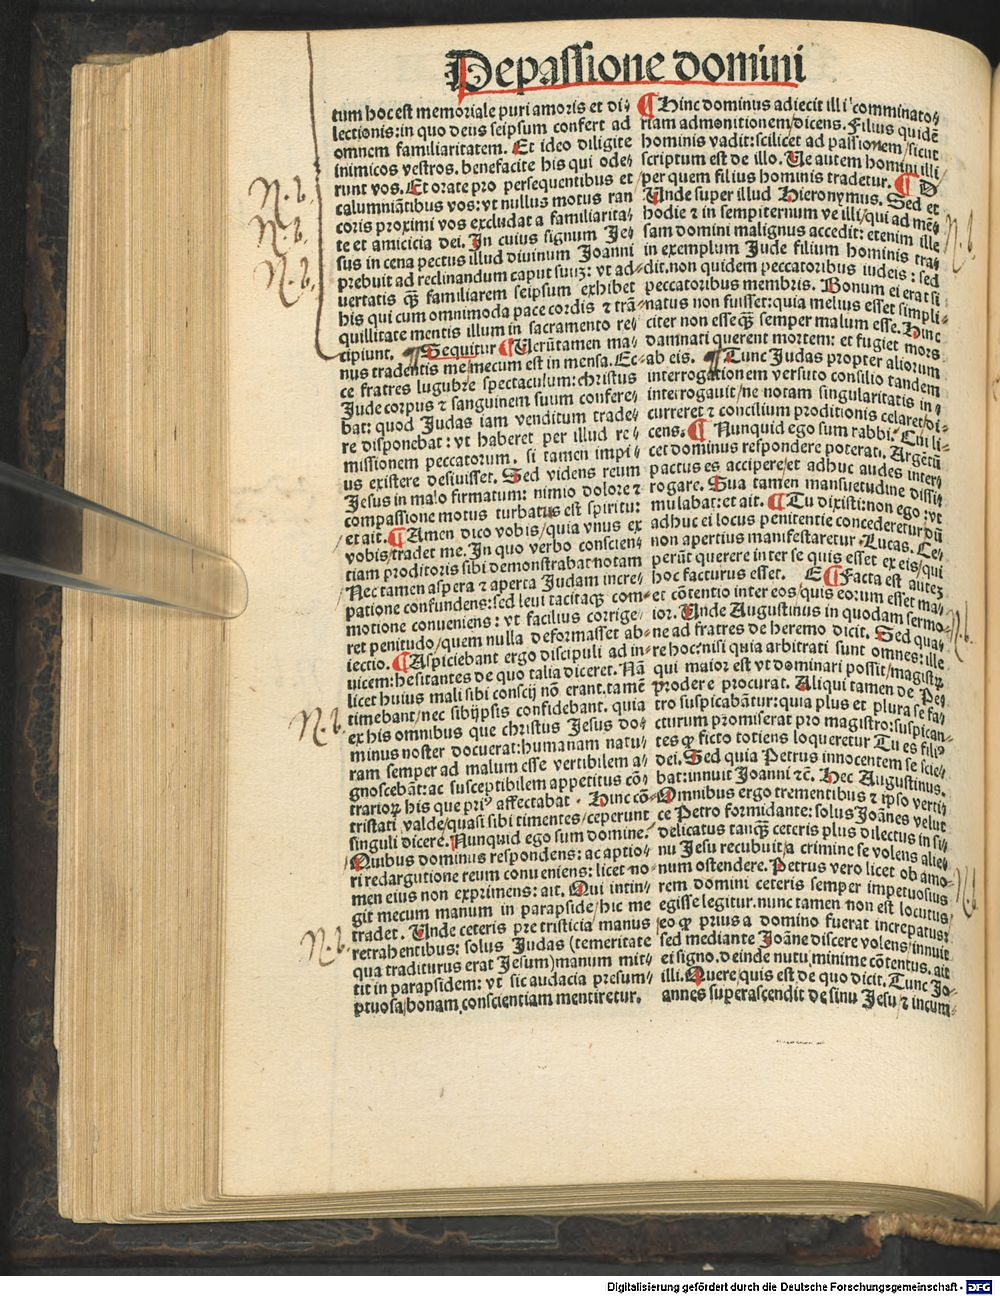 De passione domini
tum hoc est memoriale puri amoris et di⸗
lectionis: in quo deus seipsum confert ad
omnem familiaritatem. Et ideo diligite
inimicos vestros. benefacite his qui ode⸗
runt vos. Et orate pro persequentibus et
calumniātibus vos: vt nullus motus ran
coris proximi vos excludat a familiarita⸗
te et amicicia dei. In cuius signum Je⸗
sus in cena pectus illud diuinum Joanni
prebuit ad reclinandum caput suuꝫ: vt ad⸗
uertatis qꝫ̄ familiarem seipsum exhibet
his qui cum omnimoda pace cordis ⁊ trā⸗
quillitate mentis illum in sacramento re⸗
cipiunt. ¶ Sequitur ¶ Uerūtamen ma⸗
nus tradentis me/mecum est in mensa. Ec⸗
ce fratres lugubre spectaculum: christus
Jude corpus ⁊ sanguinem suum confere⸗
bat: quod Judas iam venditum trade⸗
re disponebat: vt haberet per illud re⸗
missionem peccatorum. si tamen impi⸗
us existere desiuisset. Sed videns reum
Jesus in malo firmatum: nimio dolore ⁊
compassione motus turbatus est spiritu:
et ait. ¶ Amen dico vobis/quia vnus ex
vobis/tradet me. In quo verbo conscien⸗
tiam proditoris sibi demonstrabat notam
Nec tamen aspera ⁊ aperta Judam incre⸗
patione confundens: sed leui tacitaqꝫ com⸗
motione conueniens: vt facilius corrige⸗
ret penitudo/quem nulla deformasset ab⸗
iectio. ¶ Aspiciebant ergo discipuli ad in⸗
uicem: hesitantes de quo talia diceret. Nā
licet huius mali sibi conscij nō erant. tamē
timebant/nec sibijpsis confidebant. quia
ex his omnibus que christus Jesus do⸗
minus noster docuerat: humanam natu⸗
ram semper ad malum esse vertibilem a⸗
gnoscebāt: ac susceptibilem appetitus cō⸗
trarioꝝ his que priꝰ affectabat. Hinc cō⸗
tristati valde/quasi sibi timentes/ceperunt
singuli dicere. Nunquid ego sum domine.
Quibus dominus respondens: ac aptio⸗
ri redargutione reum conueniens: licet no⸗
men eius non exprimens: ait. Qui intin⸗
git mecum manum in parapside/hic me
tradet. Unde ceteris pre tristicia manus
retrahentibus: solus Judas (temeritate
qua traditurus erat Jesum) manum mit⸗
tit in parapsidem: vt sic audacia presum⸗
ptuosa/bonam conscientiam mentiretur.
¶ Hinc dominus adiecit illi comminato⸗
riam admonitionem/dicens. Filius quidē
hominis vadit: scilicet ad passionem/sicut
scriptum est de illo. Ue autem homini illi/
per quem filius hominis tradetur. ¶ D
Unde super illud Hieronymus. Sed et
hodie ⁊ in sempiternum ve illi/qui ad mē⸗
sam domini malignus accedit: etenim ille
in exemplum Jude filium hominis tra⸗
dit. non quidem peccatoribus iudeis: sed
peccatoribus membris. Bonum ei erat si
natus non fuisset: quia melius esset simpli⸗
citer non esse qꝫ̄ semper malum esse. Hinc
damnati querent mortem: et fugiet mors
ab eis. ¶ Tunc Judas propter aliorum
interrogationem versuto consilio tandem
interrogauit/ne notam singularitatis in⸗
curreret ⁊ concilium proditionis celaret/di⸗
cens. ¶ Nunquid ego sum rabbi. Cui li⸗
cet dominus respondere poterat. Argētū
pactus es accipere/et adhuc audes inter⸗
rogare. Sua tamen mansuetudine dissi⸗
mulabat: et ait. ¶ Tu dixisti: non ego: vt
adhuc ei locus penitentie concederetur dū
non apertius manifestaretur. Lucas. Ce⸗
perūt querere inter se quis esset ex eis/qui
hoc facturus esset. E ¶ Facta est auteꝫ
et cōtentio inter eos/quis eorum esset ma⸗
ior. Unde Augustinus in quodam sermo⸗
ne ad fratres de heremo dicit. Sed qua⸗
re hoc: nisi quia arbitrati sunt omnes: ille
qui maior est vt dominari possit/magistꝝ
prodere procurat. Aliqui tamen de Pe⸗
tro suspicabāntur: quia plus et plura se fa⸗
cturum promiserat pro magistro: suspican⸗
tes ꝙ ficto totiens loqueretur Tu es filiꝰ
dei. Sed quia Petrus innocentem se scie⸗
bat: innuit Joanni ⁊c̄. Hec Augustinus.
Omnibus ergo trementibus ⁊ ipso verti⸗
ce Petro formidante: solus Joānes velut
delicatus tanqꝫ̄ ceteris plus dilectus in si⸗
nu Jesu recubuit/a crimine se volens alie⸗
num ostendere. Petrus vero licet ob amo⸗
rem domini ceteris semper impetuosius
egisse legitur. nunc tamen non est locutus/
eo ꝙ prius a domino fuerat increpatus:
sed mediante Joāne discere volens/innuit
ei signo. deinde nutu. minime cōtentus. ait
illi. Quere/quis est de quo dicit. Tunc Jo⸗
annes superascendit de sinu Jesu/⁊ incum⸗
N.b.
N.b.
N.b.
N.b.
N.b.
N.b.
N.b.
N.b.
Digitalisierung gefördert durch die Deutsche Forschungsgemeinschaft - DFG